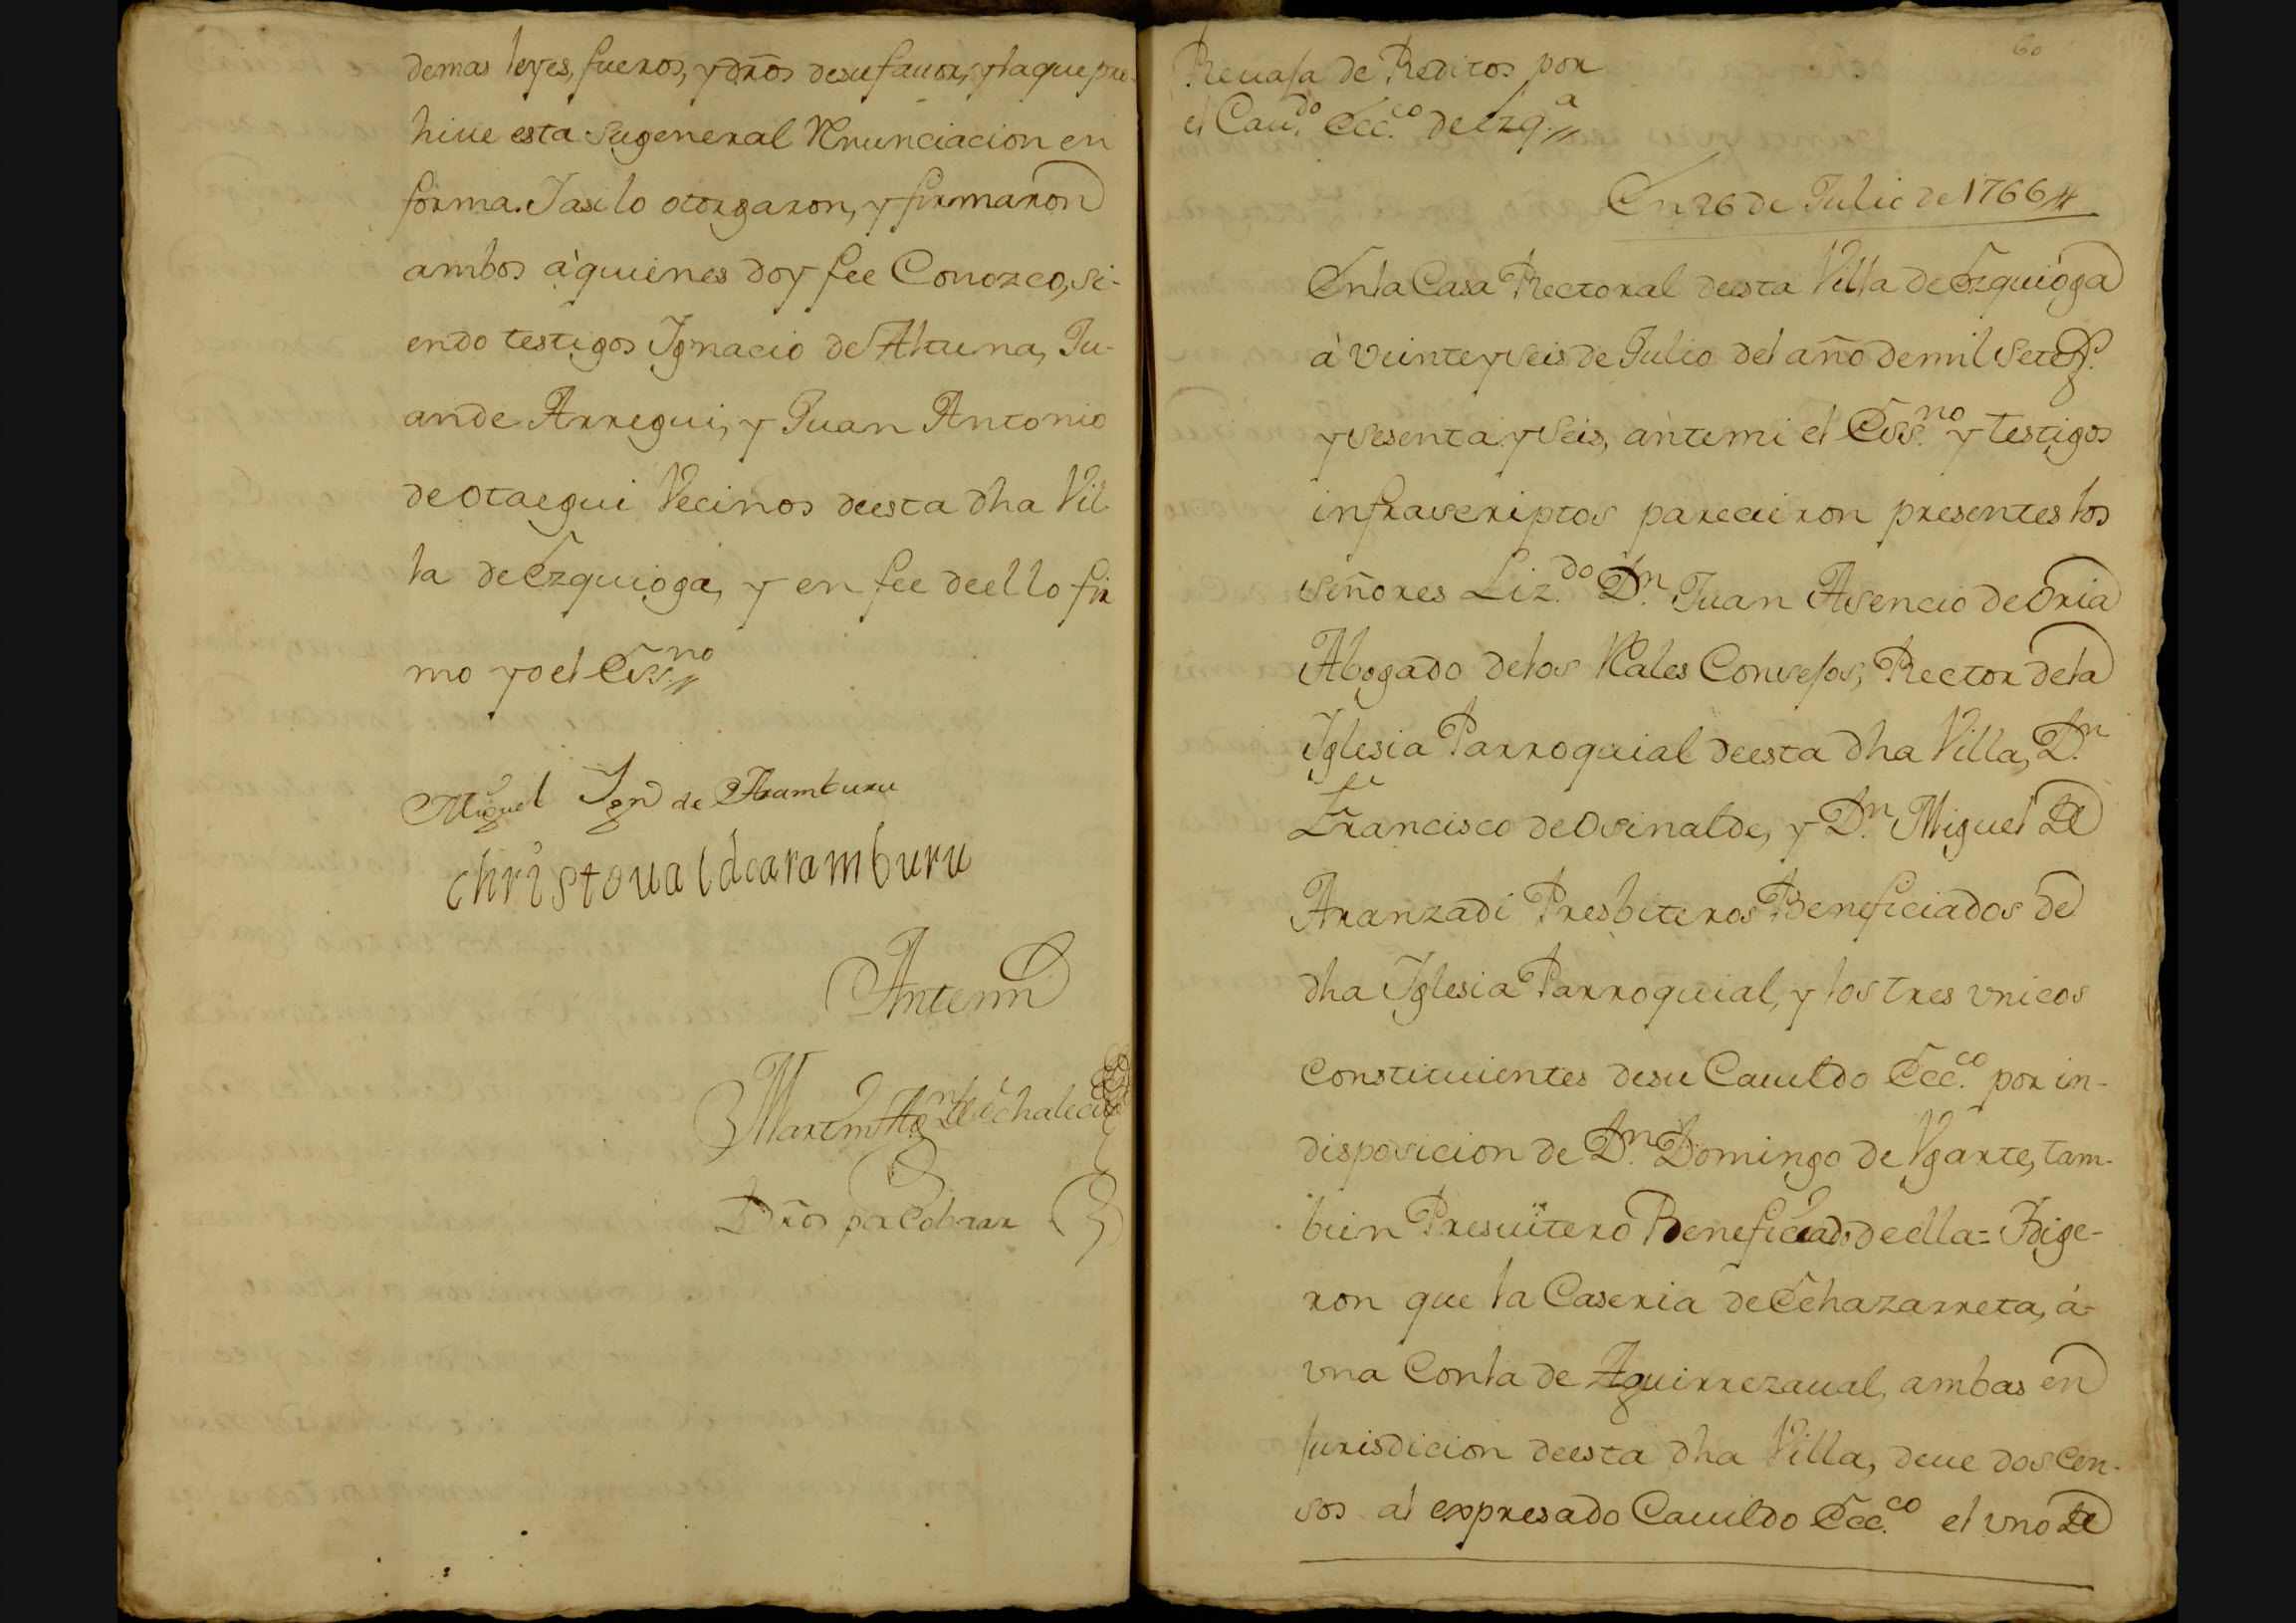 demas leyes, fueros, y dr̃os desu fauor, y la que pro-
hiue esta Su general Renunciacion en
forma. I asi lo otorgaron, y firmaron
ambos à quienes doy fee Conozco, si-
endo testigos Ignacio de Altuna, Ju-
ande Arregui, y Juan Antonio
de Otaegui Vecinos deesta dha Vil-
la de Ezquioga, y en fee deello fir
mo yo el Ess.no
Miguel Ign de Aramburu
christoual de aramburu
Antemi
Martin
Dr̃os por Cobrar
60
Reuaja de Reditos por
el Cau.do Ecc.co de Ezq.a
En 26 de Julio de 1766
En la Casa Rectoral deesta Villa de Ezquioga
à veinte y seis de Julio del año de mil setes.
y sesenta y seis, ante mi el Ess.no y testigos
infrascriptos parecieron presentes los
señores Liz.do D.n Juan Asencio de Oria
Abogado delos Reales Consejos, Rector dela
Iglesia Parroquial deesta dha Villa, D.n
Francisco de Osinalde, y D.n Miguel de
Aranzadi Presbiteros Beneficiados de
dha Iglesia Parroquial, y los tres vnicos
Constituientes desu Cauildo Ecc.co por in-
disposicion de D.n Domingo de Vgarte, tam-
bien Presuitero Beneficiado de ella = I dige-
ron que la Caseria de Echazarreta, á-
vna Con la de Aguirrezaual, ambas en
jurisdicion deesta dha Villa, deue dos Cen-
sos al expresado Cauildo Ecc.co el vno de